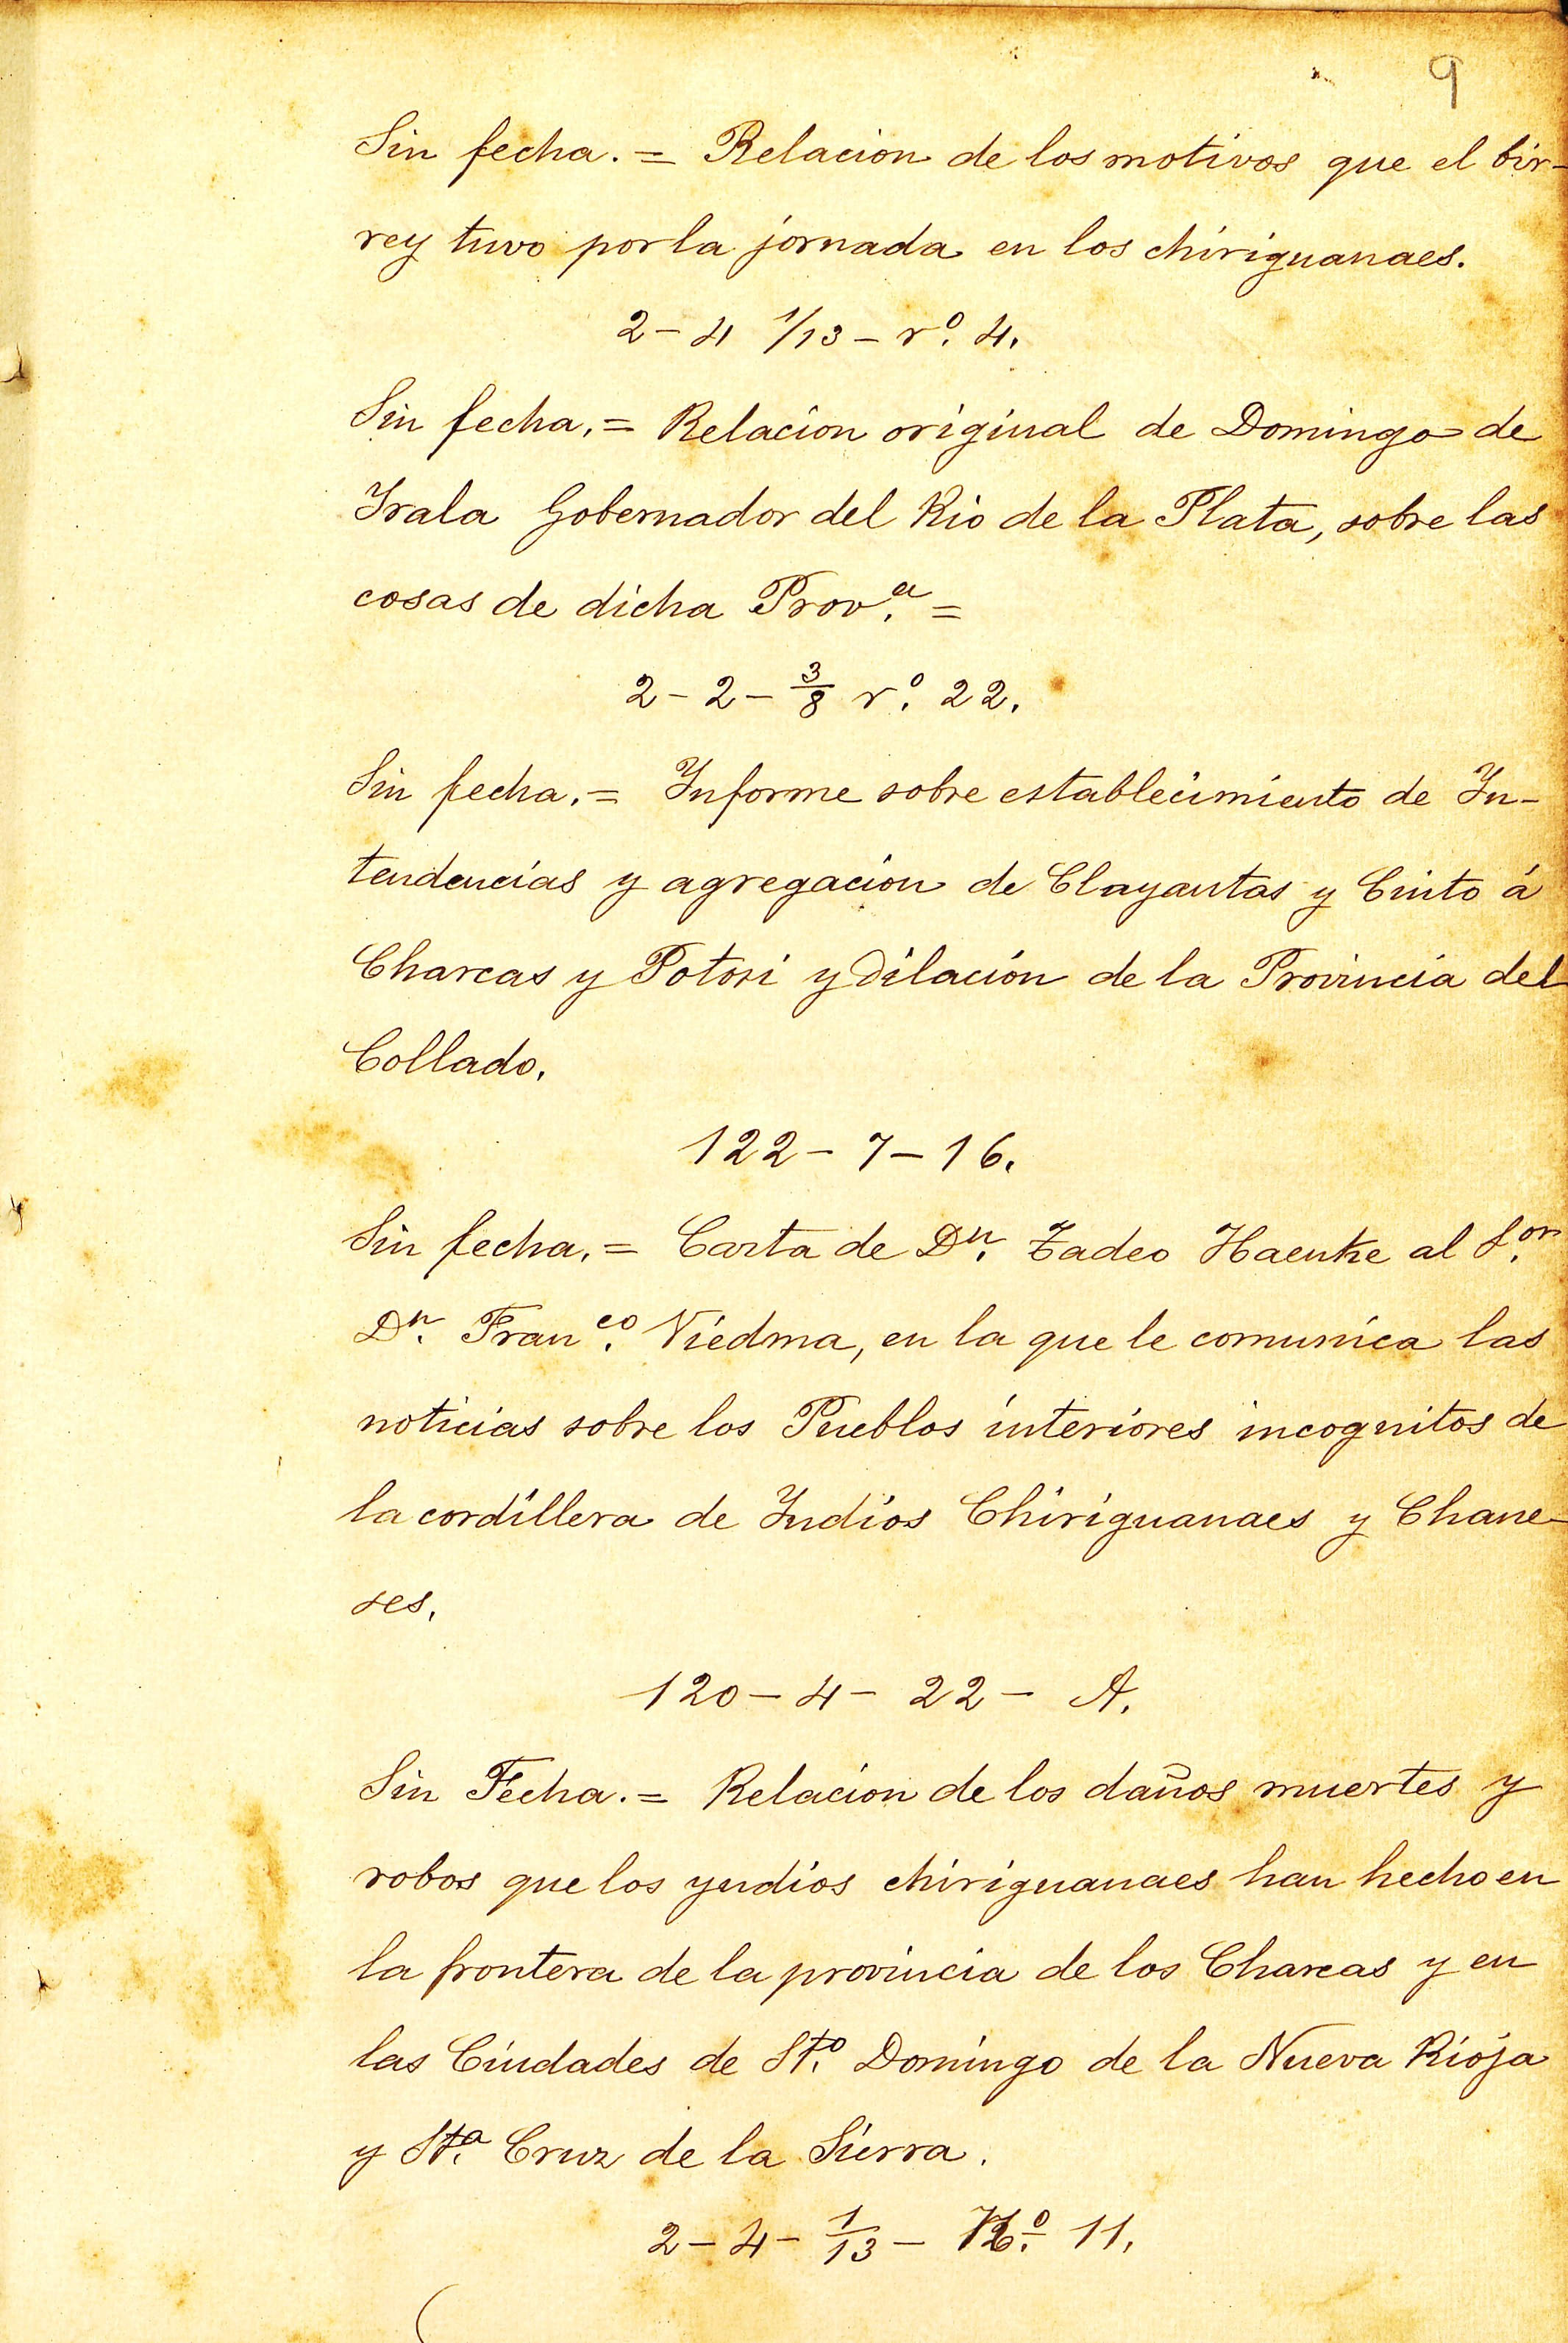 9
Sin fecha. = Relacion de los motivos que el bir-
rey tuvo por la jornada en los chiriguanaes.
2 - 4 1/13 - rº. 4.
Sin fecha. = Relacion original de Domingo de
Irala Gobernador del Rio de la Plata, sobre las
cosas de dicha Prov.ª =
2 - 2 - 3/8 rº. 22.
Sin fecha. = Informe sobre establecimiento de In-
tendencias y agregacion de Clayantas y Cinto á
Charcas y Potosi y dilación de la Provincia del
Collado.
122 - 7 - 16.
Sin fecha. = Carta de Dn. Tadeo Haenke al Sor.
Dn. Franco. Viedma, en la que le comunica las
noticias sobre los Pueblos interiores incognitos de
la cordillera de Indios Chiriguanaes y Chane-
ses.
120 - 4 - 22 - A.
Sin Fecha. = Relacion de los daños muertes y
robos que los yndios chiriguanaes han hecho en
la frontera de la provincia de los Charcas y en
las Ciudades de Sto. Domingo de la Nueva Rioja
y Sta. Cruz de la Sierra.
2 - 4 - 1/13 - º. 11.